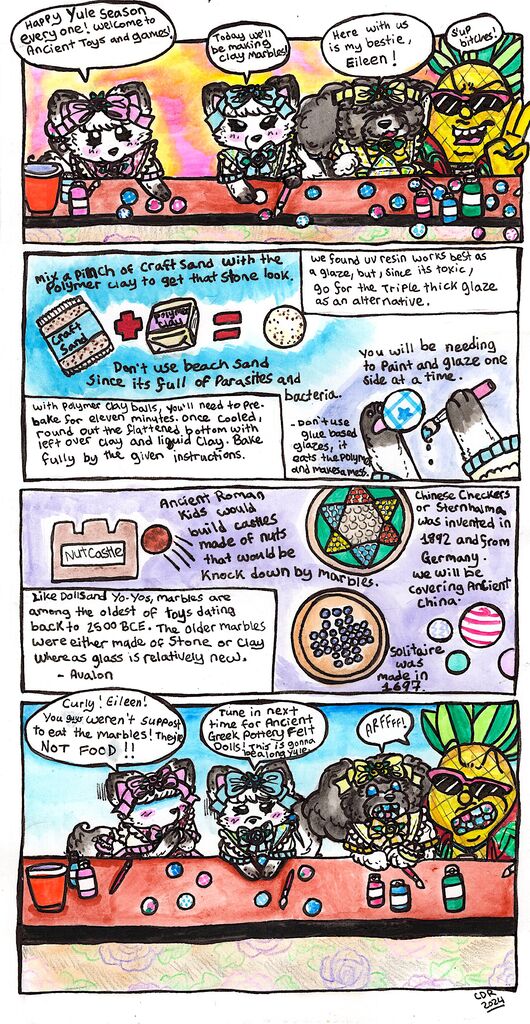 Happy Yule Season
every one! Welcome to
Ancient Toys and games!
Today we'll
be making
Clay Marbles!
Here with us
is my bestie,
Eileen!
S'up
bitches!
Mix a pinch of craft sand with the
Polymer clay to get that stone look.
Craft
Sand
Polymer
Clay
Don't use beach sand
Since its full of Parasites and
bacteria.
we found uv resin works best as
a glaze, but, since its toxic,
go for the Triple thick glaze
as an alternative.
With Polymer Clay balls, you'll need to Pre-
bake for eleven minutes. once cooled,
round out the flattened bottom with
left over clay and liquid Clay. Bake
fully by the given instructions.
You will be needing
to Paint and glaze one
side at a time.
- Don't use
glue based
glazes, it
eats the Polymer
and makes a mess.
Nut Castle
Ancient Roman
Kids would
build castles
made of nuts
that would be
Knock down by marbles.
Chinese Checkers
or Sternhalma
was invented in
1892 and from
Germany.
we will be
covering Ancient
China.
Like Dolls and Yo-Yos, marbles are
among the oldest of toys dating
back to 2500 BCE. The older marbles
were either made of Stone or Clay
whereas glass is relatively new.
- Avalon
Solitaire
was
made in
1697.
Curly! Eileen!
You guys weren't suppost
to eat the marbles! They're
NOT FOOD!!
Tune in next
time for Ancient
Greek Pottery Felt
Dolls! This is gonna
be a long Yule.
ARFFFF!
CDR
2024